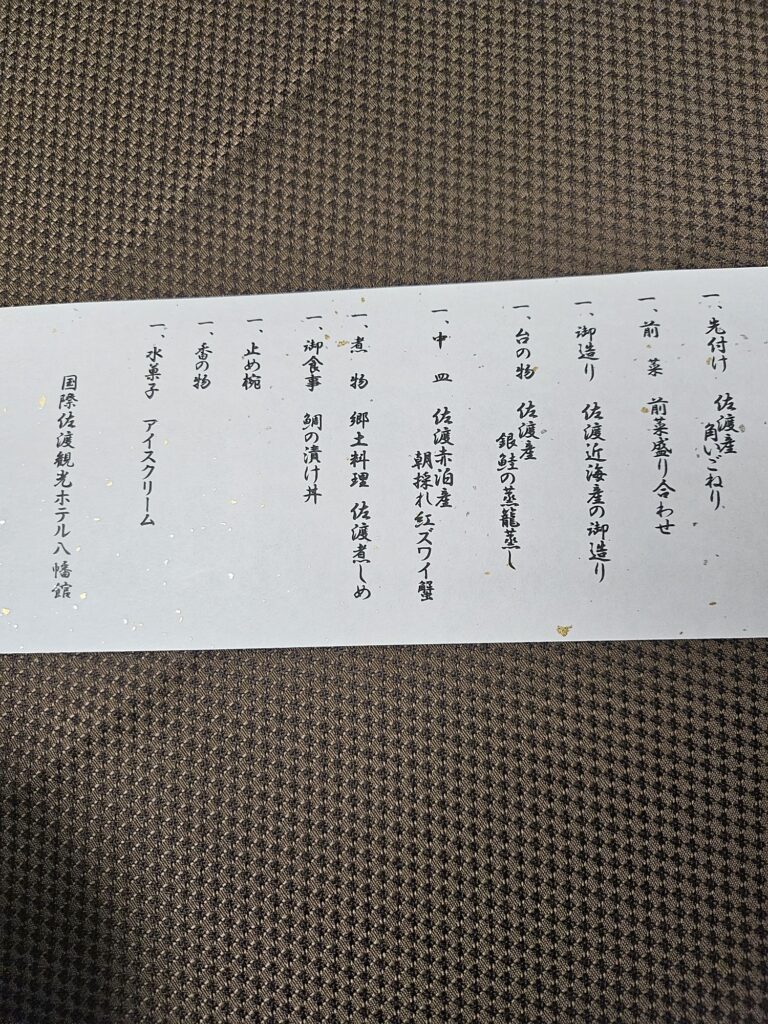 一、先付け　佐渡産
角いごねり
一、前　菜　前菜盛り合わせ
一、御造り　佐渡近海産の御造り
一、台の物　佐渡産
銀鮭の蒸籠蒸し
一、中　皿　佐渡赤泊産
朝採れ紅ズワイ蟹
一、煮　物　郷土料理　佐渡煮しめ
一、御食事　鯛の漬け丼
一、止め椀
一、香の物
一、水菓子　アイスクリーム
国際佐渡観光ホテル八幡館